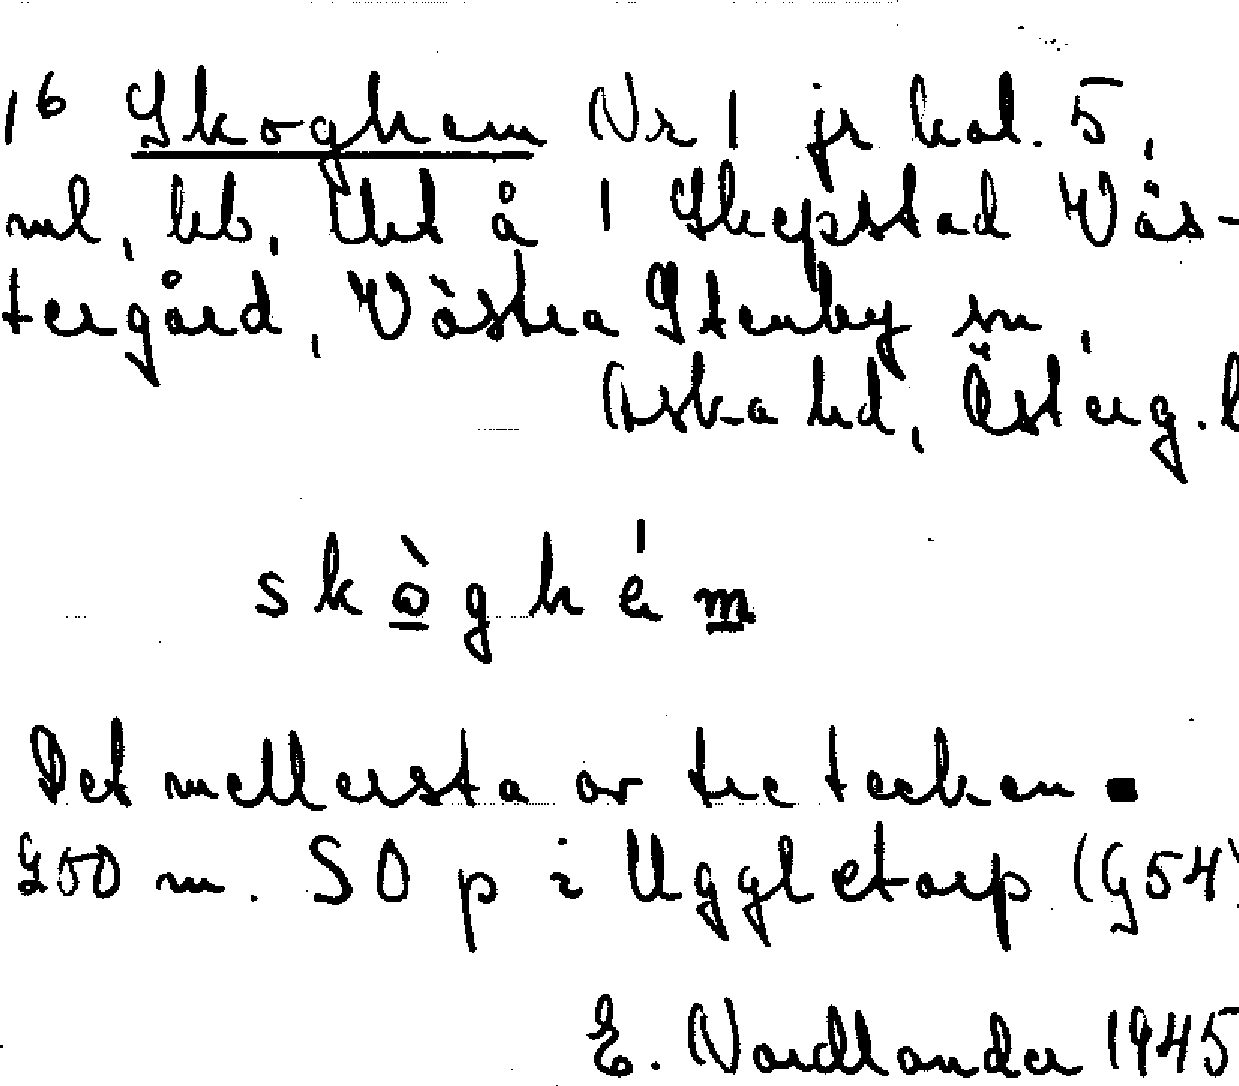 1⁶ Skoghem Nr 1 jr kol. 5,
ml, bb, Uht å 1 Skepstad Väs-
tergård, Västra Stenby sn,
Aska hd, Österg. l
skò̱ghém̱
Det mellersta av tre tecken ▪
450 m. SO p i Uggletorp (G54)
E. Nordlander 1945